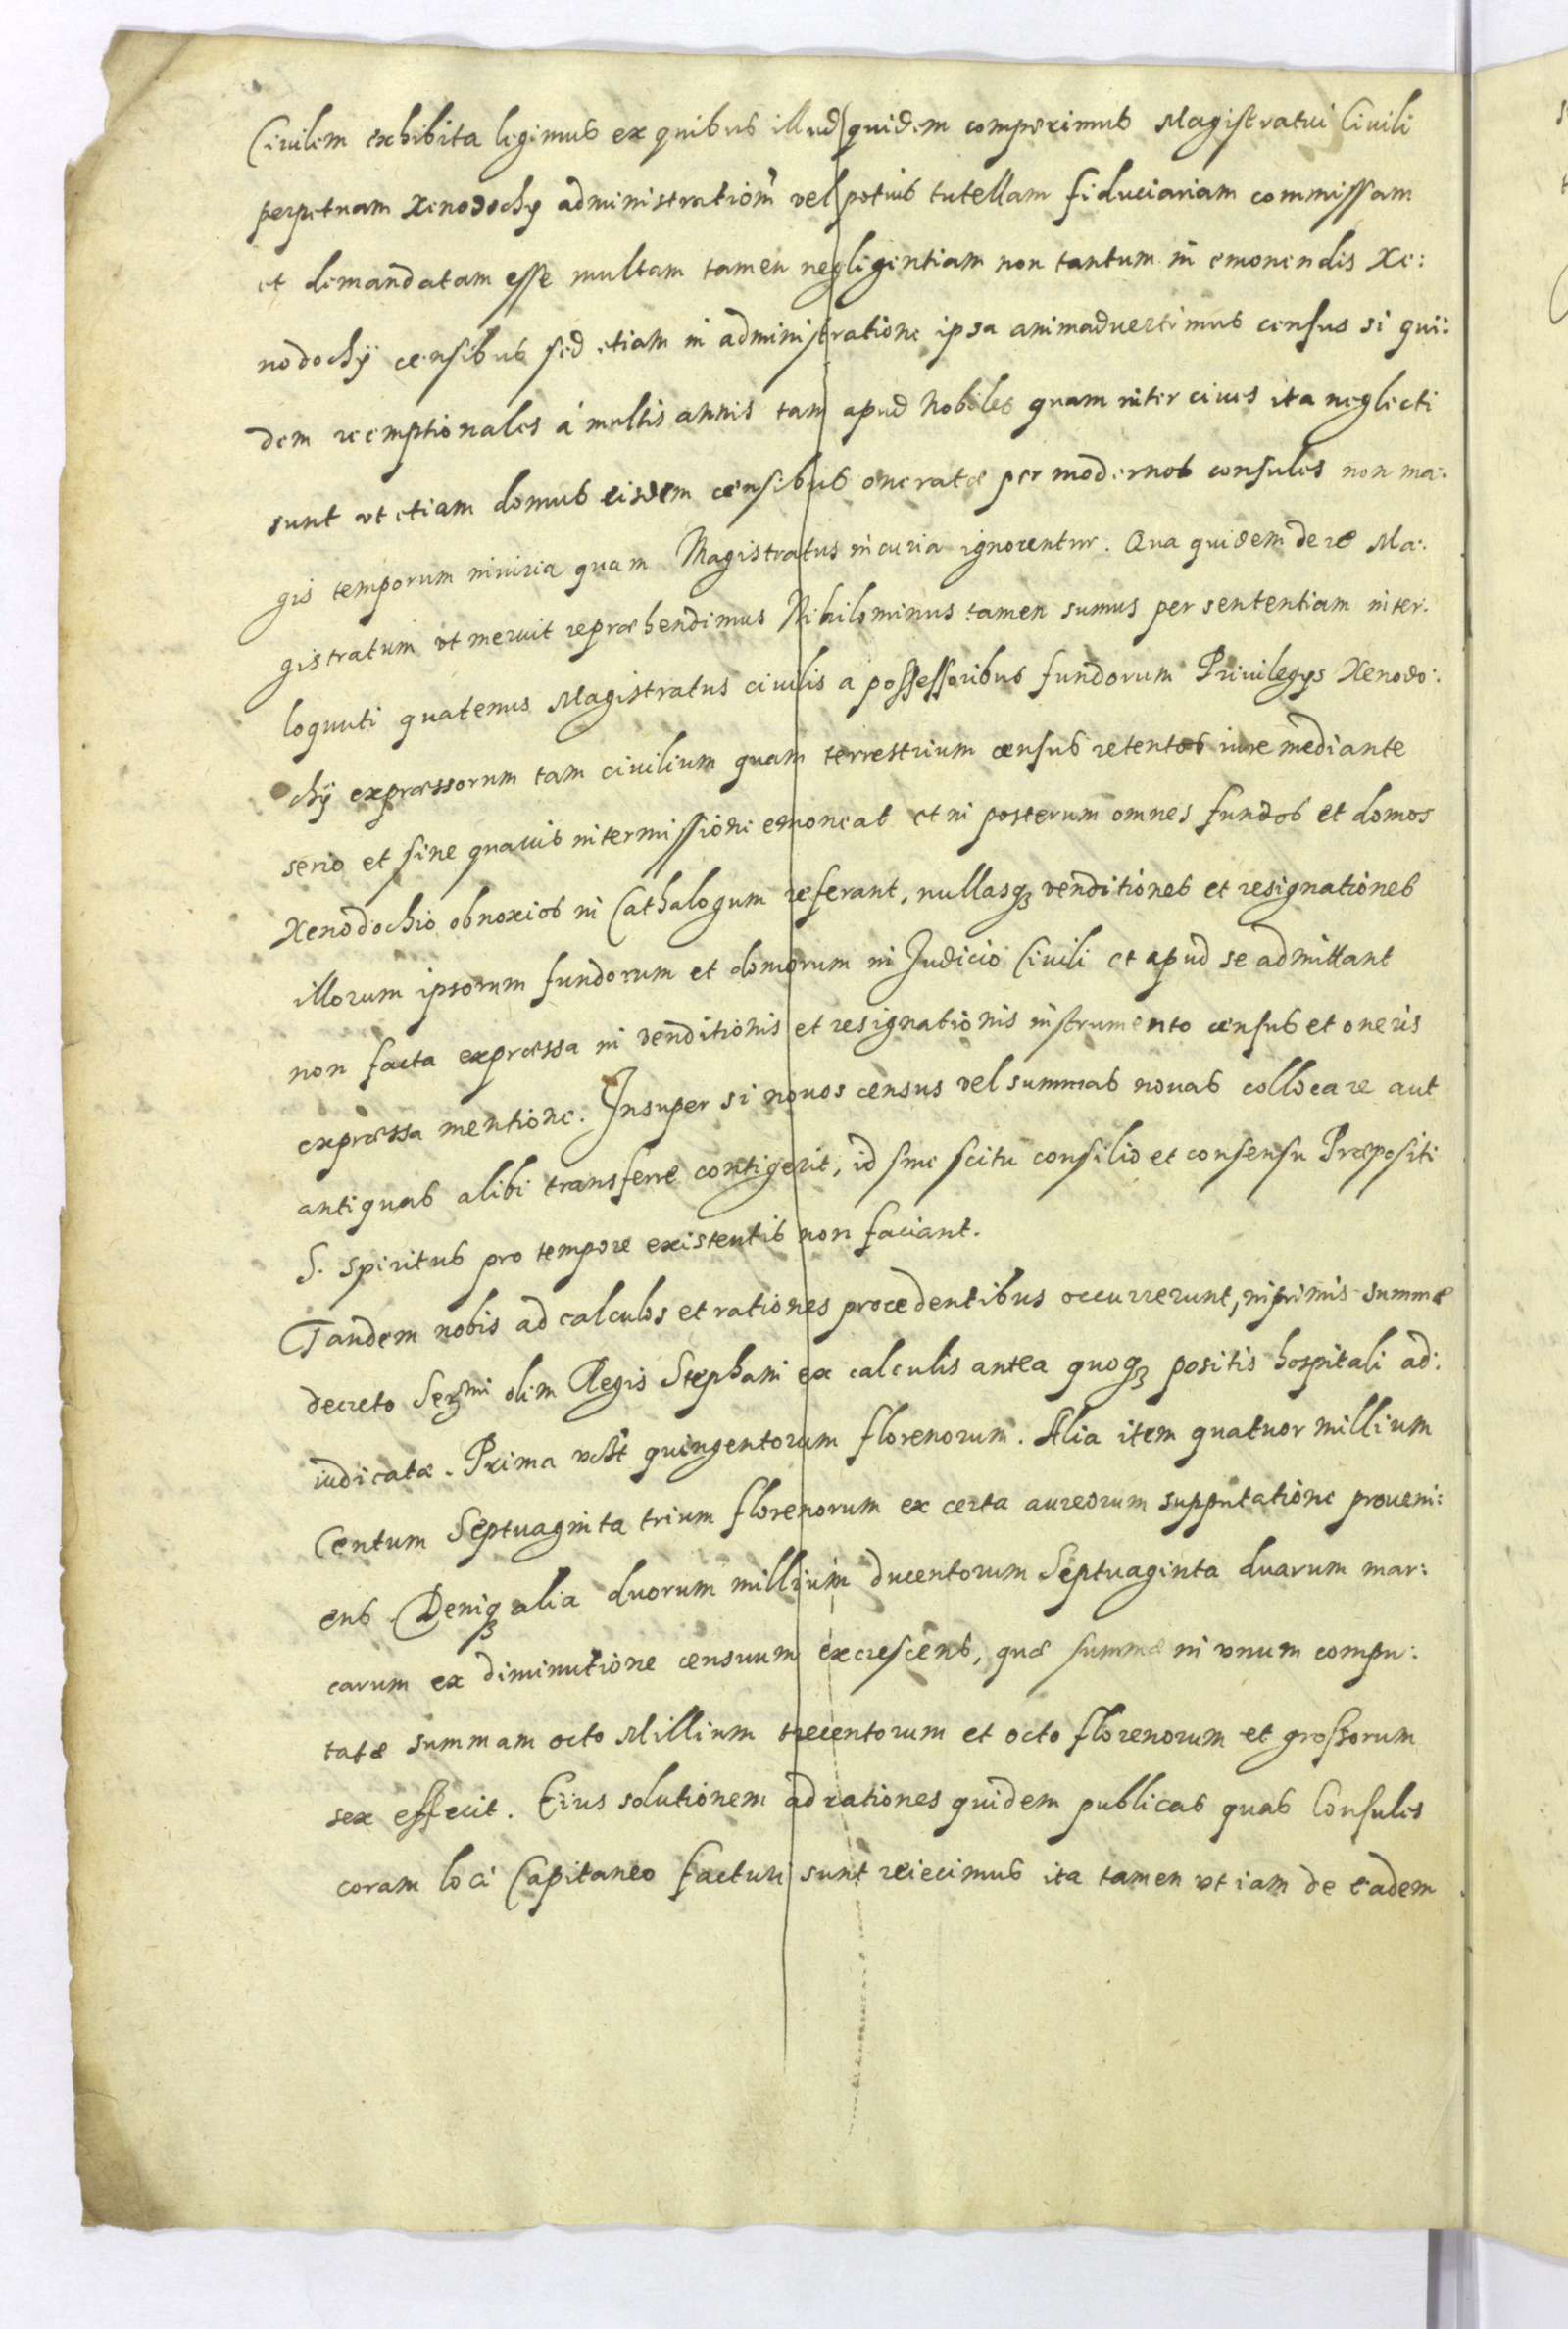 Ciuilem exhibita legimus ex quibus illud quidem comperimus Magistratui Ciuili
perpetuam Xenodochy administrationem̃ vel potius tutellam fiduciariam commissam
et demandatam esse multam tamen negligentiam non tantum in emonendis Xe:
nodochÿ censibus sed etiam in administratione ipsa animaduertimus census si qui:
dem reemptionales á multis annis tam apud Nobiles quam inter ciues ita neglecti
sunt vt etiam domus eisdem censibus oneratæ per modernos consules non ma:
gis temporum iniuria quam Magistratus incuria ignorentur. Qua quidem de re Ma:
gistratum vt meruit repræhendimus Nihilominus tamen sumus per sententiam inter:
loquuti quatenus Magistratus ciuilis a possessoribus fundorum Priuilegys Xenodo:
chÿ expressorum tam ciuilium quam terrestrium census retentos iure mediante
serio et sine quauis intermissione emoneat et in posterum omnes fundos et domos
Xenodochio obnoxios in Cathalogum referant, nullasqz venditiones et resignationes
illorum ipsorum fundorum et domorum in Judicio Ciuili et apud se admittant
non facta expressa in venditionis et resignationis instrumento census et oneris
expressa mentione. Insuper si nouos census vel summas nouas collocare aut
antiquas alibi transferre contigerit, id sine scitu consilio et consensu Præpositi
S. Spiritus pro tempore existentis non faciant.
Tandem nobis ad calculos et rationes procedentibus occurrerunt, inprimis summæ
decreto Serm̃i olim Regis Stephani ex calculis antea quoqz positis hospitali ad:
iudicatæ. Prima quingentorum florenorum. Alia item quatuor millium
Centum Septuaginta trium florenorum ex certa aureorum supputatione proueni:
ens. Deniqz alia duorum millium ducentorum Septuaginta duarum mar:
carum ex diminutione censuum excrescens, quæ summæ in vnum compu:
tatæ summam octo Millium trecentorum et octo florenorum et grossorum
sex effecit. Eius solutionem ad rationes quidem publicas quas Consules
coram loci Capitaneo facturi sunt reiecimus ita tamen vt iam de eadem